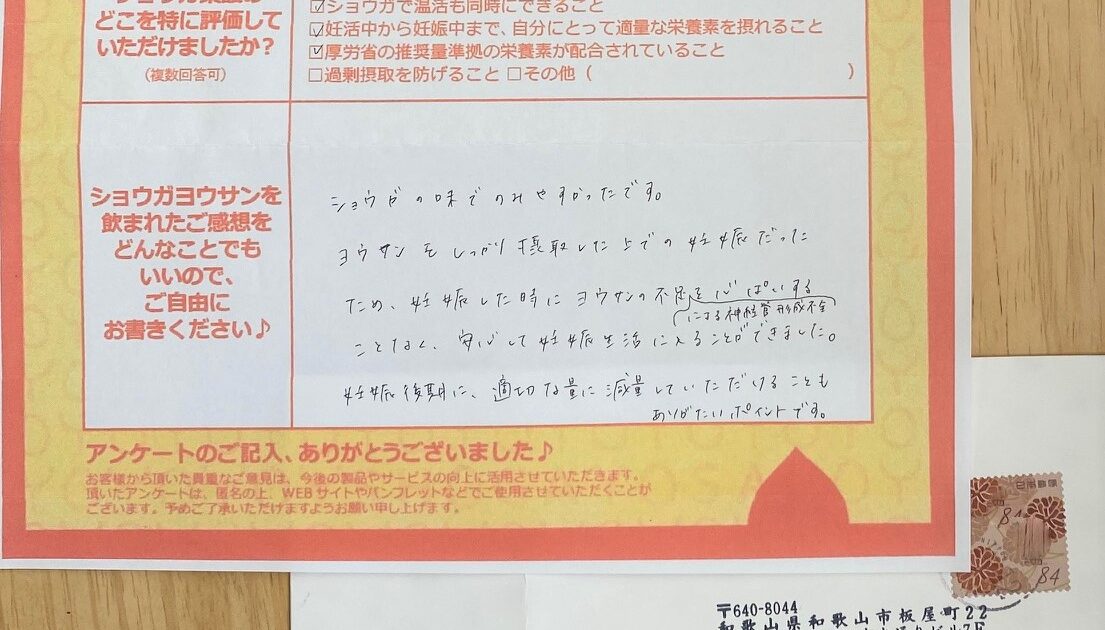 どこを特に評価して
いただけましたか？
（複数回答可）
☑ショウガで温活も同時にできること
☑妊活中から妊娠中まで、自分にとって適量な栄養素を摂れること
☑厚労省の推奨量準拠の栄養素が配合されていること
□過剰摂取を防げること □その他（ ）
ショウガヨウサンを
飲まれたご感想を
どんなことでも
いいので、
ご自由に
お書きください♪
ショウガの味でのみやすかったです。
ヨウサンをしっかり摂取した上での妊娠だった
ため、妊娠した時にヨウサンの不足を心ぱいする
による神経管形成不全
ことなく、安心して妊娠生活に入ることができました。
妊娠後期に、適切な量に減量していただけることも
ありがたいポイントです。
アンケートのご記入、ありがとうございました♪
お客様から頂いた貴重なご意見は、今後の製品やサービスの向上に活用させていただきます。
頂いたアンケートは、匿名の上、WEBサイトやパンフレットなどでご使用させていただくことが
ございます。予めご了承いただけますようお願い申し上げます。
日本郵便
84
〒640-8044
和歌山県和歌山市板屋町22